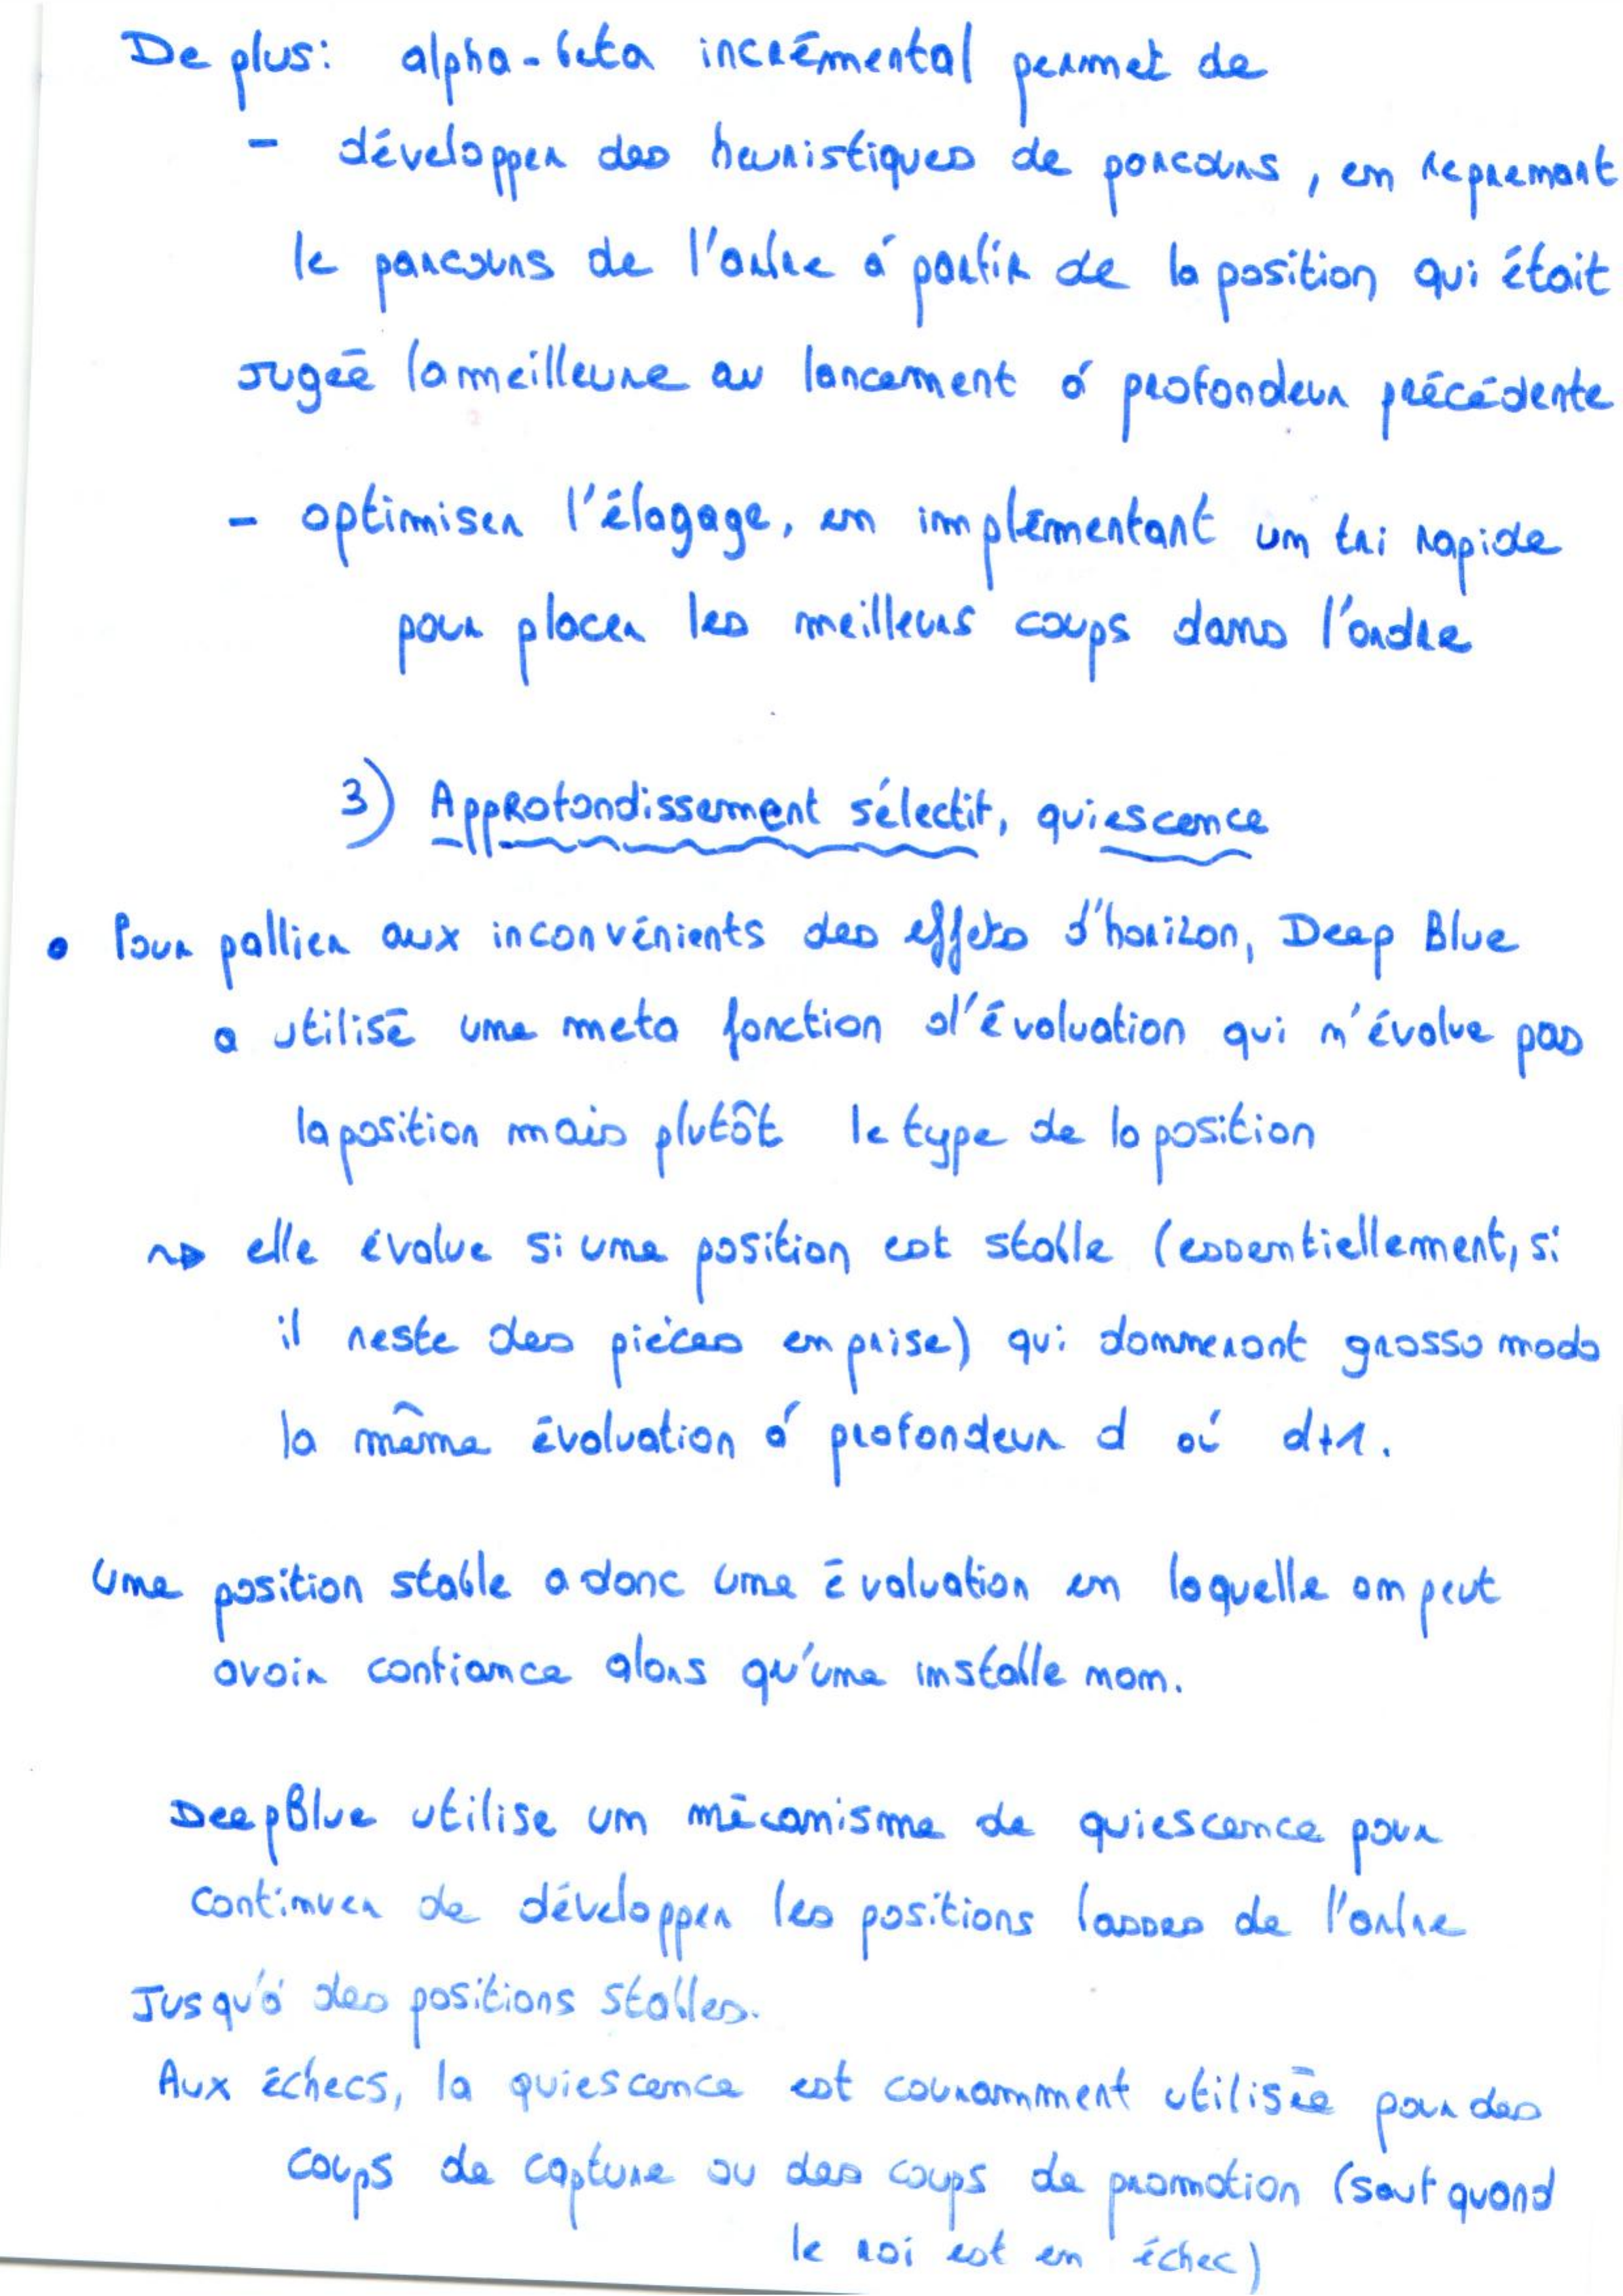 De plus: alpha-beta incrémental permet de
- développer des heuristiques de parcours, en reprenant
le parcours de l'arbre à partir de la position qui était
jugée la meilleure au lancement à profondeur précédente
- optimiser l'élagage, en implémentant un tri rapide
pour placer les meilleurs coups dans l'ordre
3) Approfondissement sélectif, quiescence
• Pour pallier aux inconvénients des effets d'horizon, Deep Blue
a utilisé une meta fonction d'évaluation qui n'évalue pas
la position mais plutôt le type de la position
~> elle évalue si une position est stable (essentiellement, si
il reste des pièces en prise) qui donneront grosso modo
la même évaluation à profondeur d où d+1.
Une position stable a donc une évaluation en laquelle on peut
avoir confiance alors qu'une instable non.
DeepBlue utilise un mécanisme de quiescence pour
continuer de développer les positions basses de l'arbre
Jusqu'à des positions stables.
Aux échecs, la quiescence est couramment utilisée pour des
coups de capture ou des coups de promotion (sauf quand
le roi est en échec)